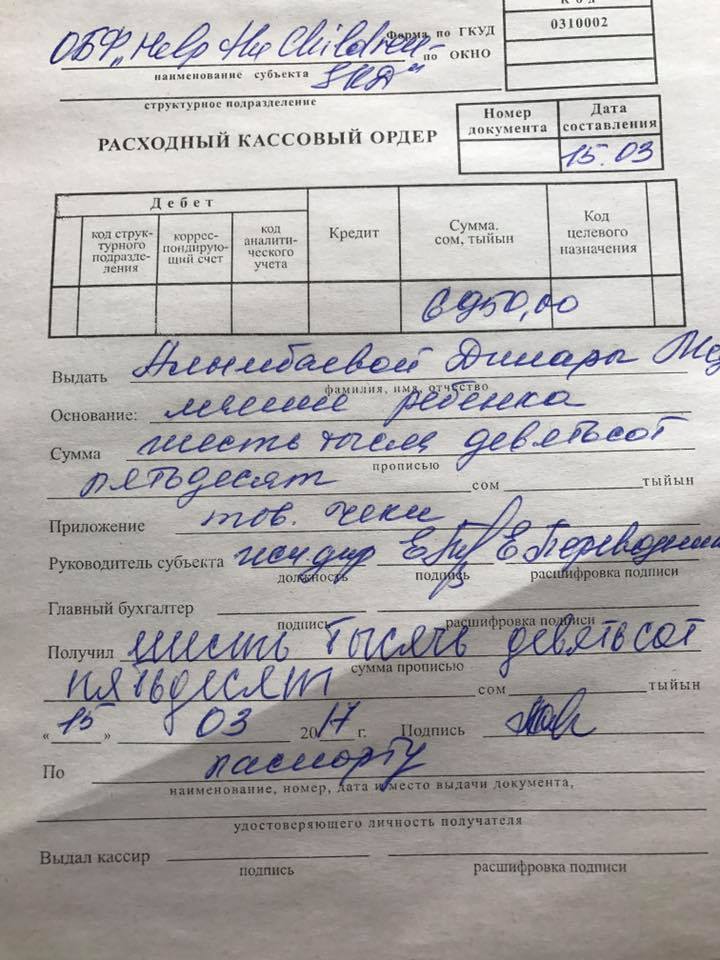 Код
Форма по ГКУД 0310002
ОБФ „Help the Children- по ОКНО
наименование субъекта
SKD"
структурное подразделение
РАСХОДНЫЙ КАССОВЫЙ ОРДЕР
Номер документа
Дата составления
15.03
Дебет
код струк-
турного
подразде-
ления
коррес-
пондирую-
щий счет
код
аналити-
ческого
учета
Кредит
Сумма.
сом, тыйын
Код
целевого
назначения
6950,00
Выдать Алымбаевой Динары
фамилия, имя, отчество
Основание: ребёнка
Сумма шесть тысяч девятьсот
прописью
пятьдесят сом тыйын
Приложение тов. чеки
Руководитель субъекта Е.Переводчик
должность подпись расшифровка подписи
Главный бухгалтер
подпись расшифровка подписи
Получил шесть тысяч девятьсот
сумма прописью
пятьдесят сом тыйын
« 15 » 03 2017 г. Подпись
По паспорту
наименование, номер, дата и место выдачи документа,
удостоверяющего личность получателя
Выдал кассир
подпись расшифровка подписи